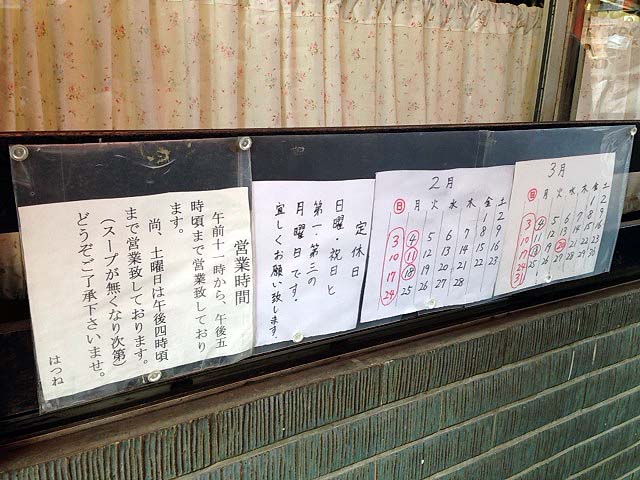 営業時間
午前十一時から、午後五
時頃まで営業致しており
ます。
尚、土曜日は午後四時頃
まで営業致しております。
（スープが無くなり次第）
どうぞご了承下さいませ。
はつね
定休日
日曜・祝日と
第一・第三の
月曜日です。
宜しくお願い致します。
2月
日 月 火 水 木 金 土
1 2
3 4 5 6 7 8 9
10 11 12 13 14 15 16
17 18 19 20 21 22 23
24 25 26 27 28
3月
日 月 火 水 木 金 土
1 2
3 4 5 6 7 8 9
10 11 12 13 14 15 16
17 18 19 20 21 22 23
24 25 26 27 28 29 30
31